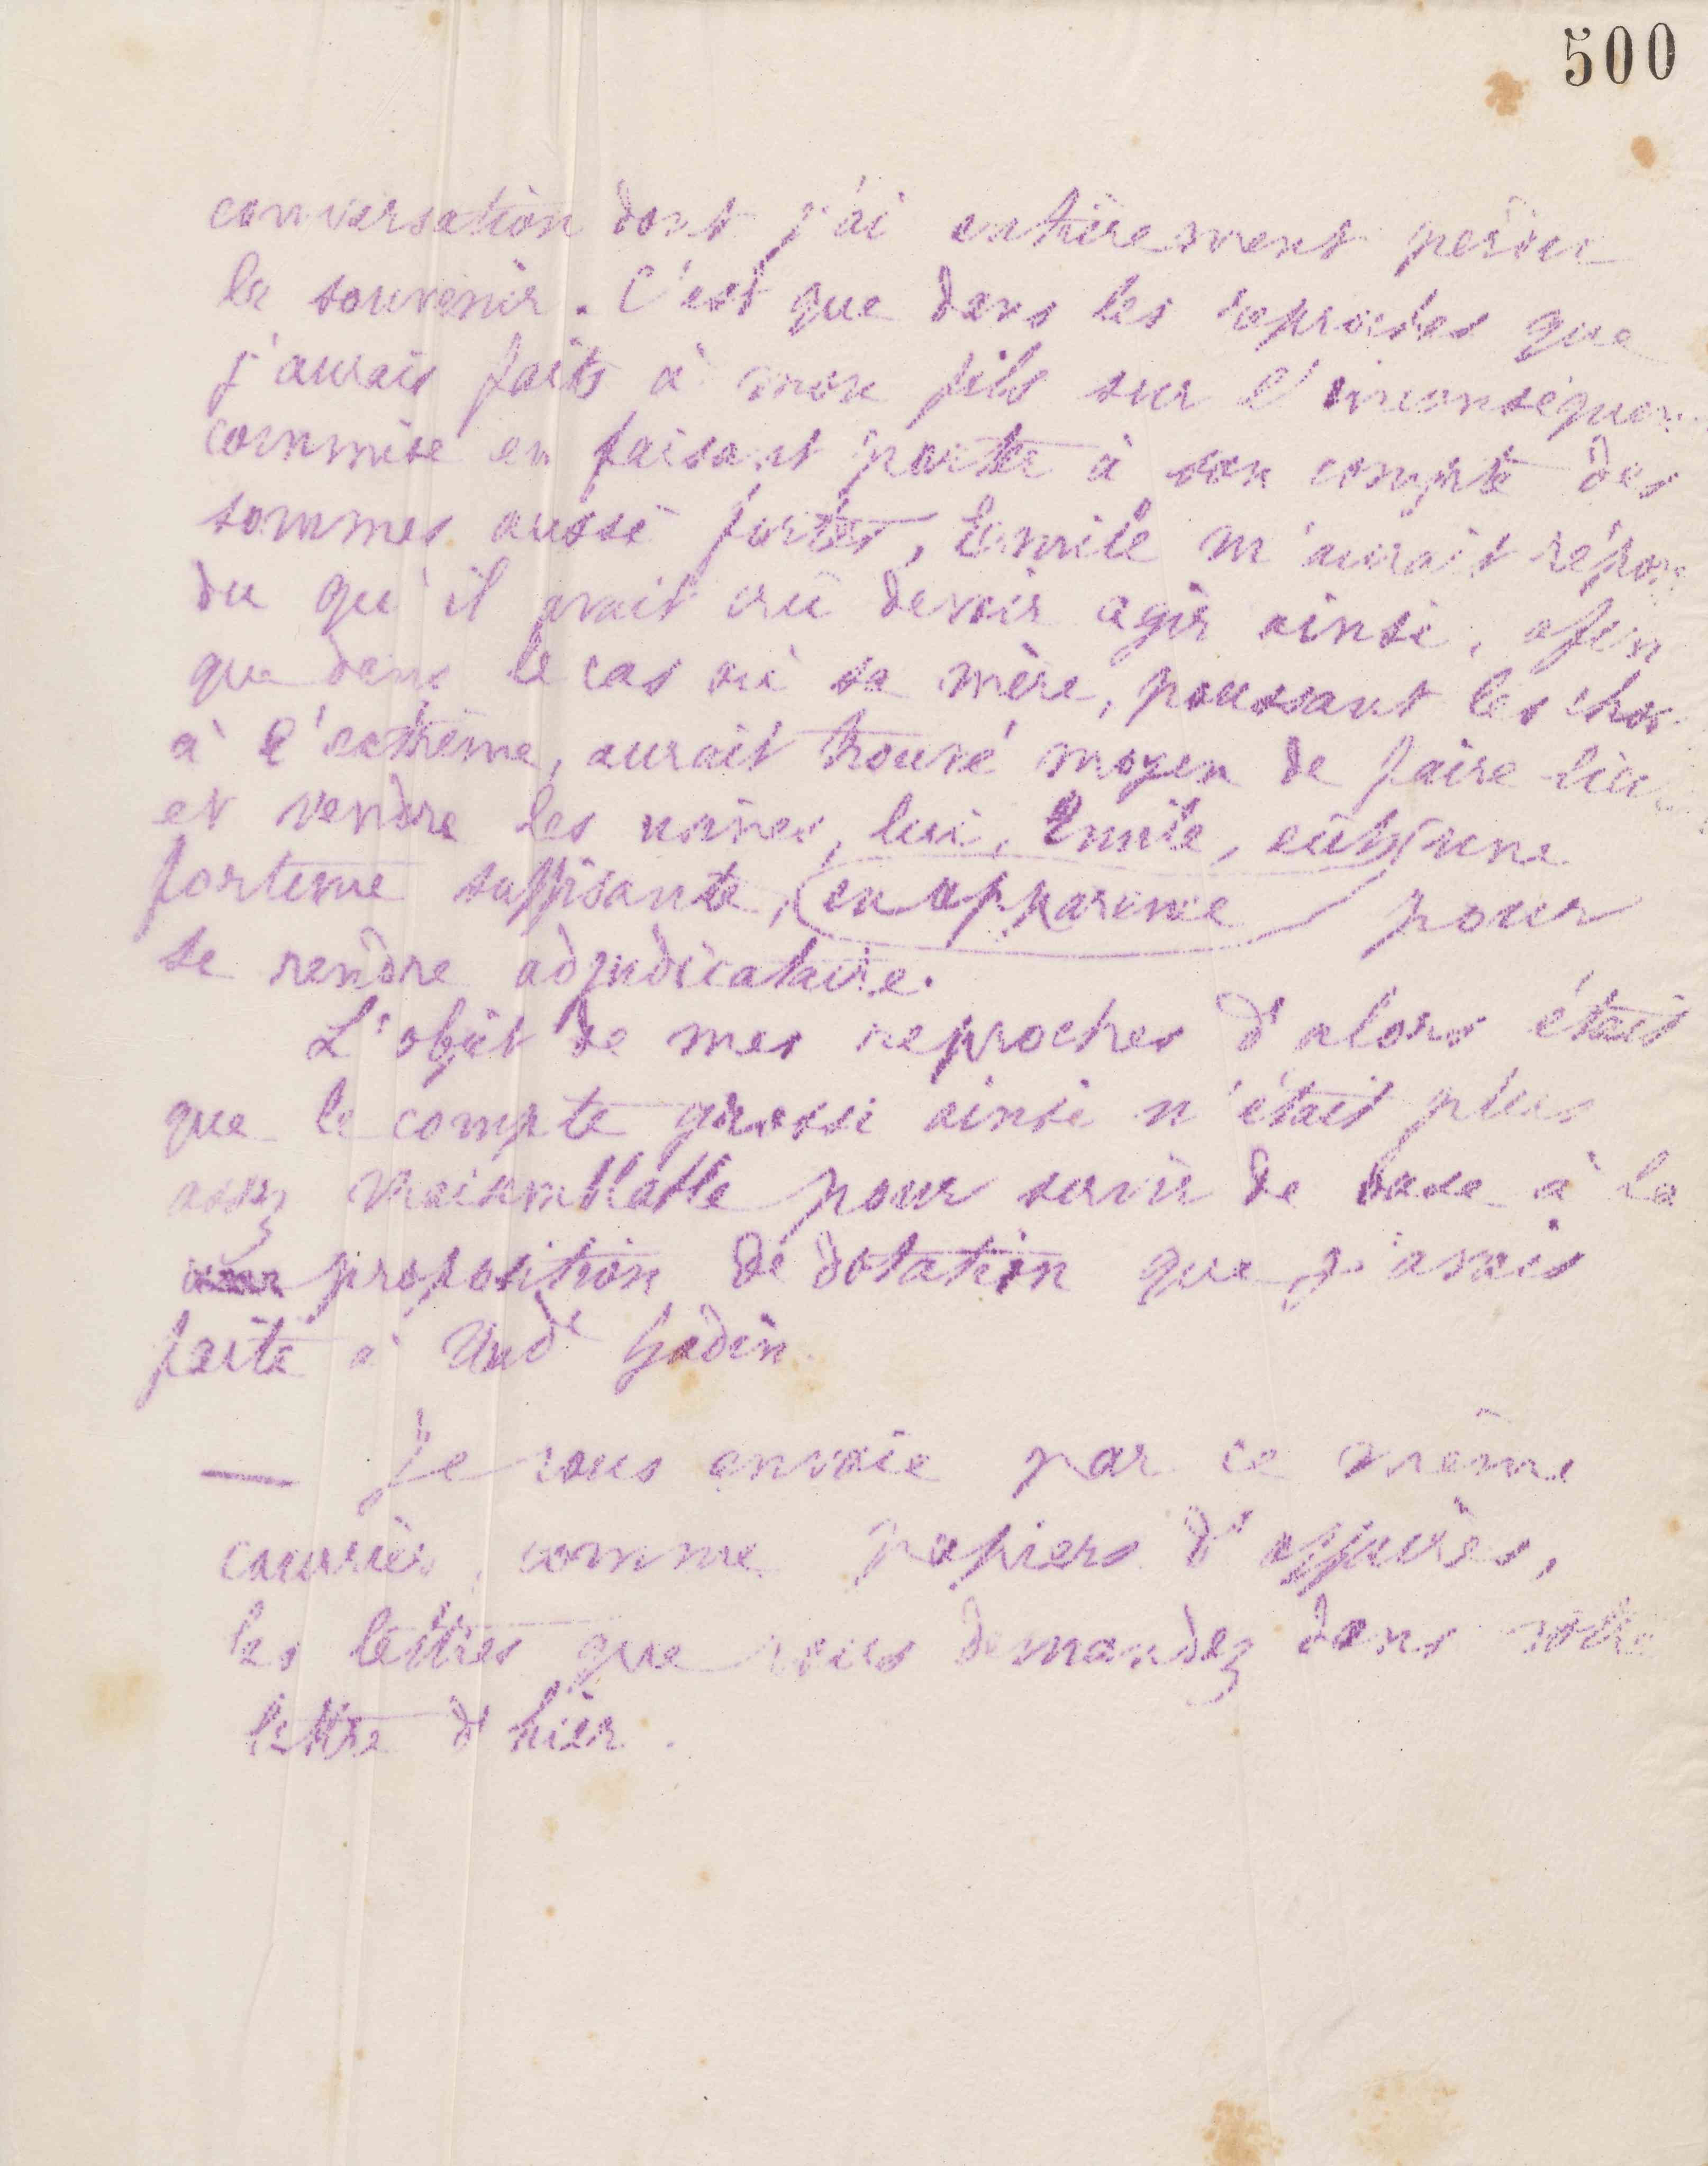 500
conversation dont j'ai entièrement perdu
le souvenir. C'est que dans les reproches que
j'aurais faits à mon fils sur l'inconséquen
commise en faisant porter à son compte des
sommes aussi fortes, Emile m'aurait répon
du qu'il avait crû devoir agir ainsi, afin
que dans le cas où sa mère, poussant les chos
à l'extrême, aurait trouvé moyen de faire
et vendre les usines, lui, Emile, eût une
fortune suffisante, en apparence pour
se rendre adjudicataire.
L'objet de mes reproches d'alors était
que le compte grossi ainsi n'était plus
assez vraisemblable pour servir de base à la
proposition de dotation que j'avais
faite à Mad^e Godin.
— Je vous envoie par ce même
courrier, comme papiers d'affaires,
les lettres que vous demandez dans votre
lettre d'hier.